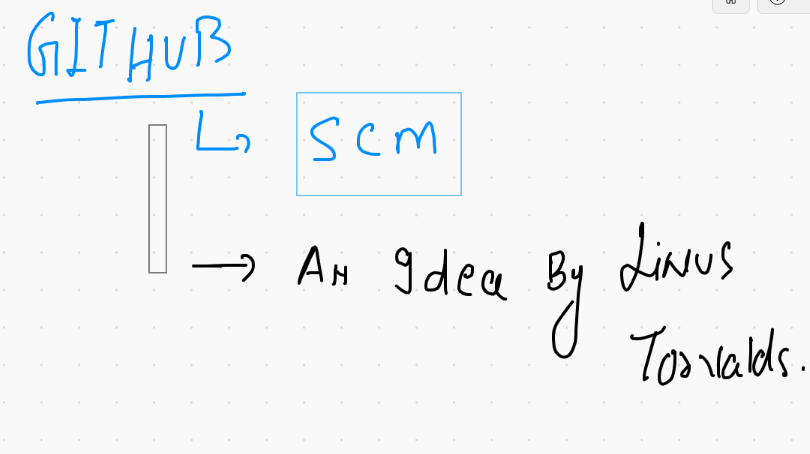 GITHUB
SCM
→ An Idea By Linus
Torvalds.